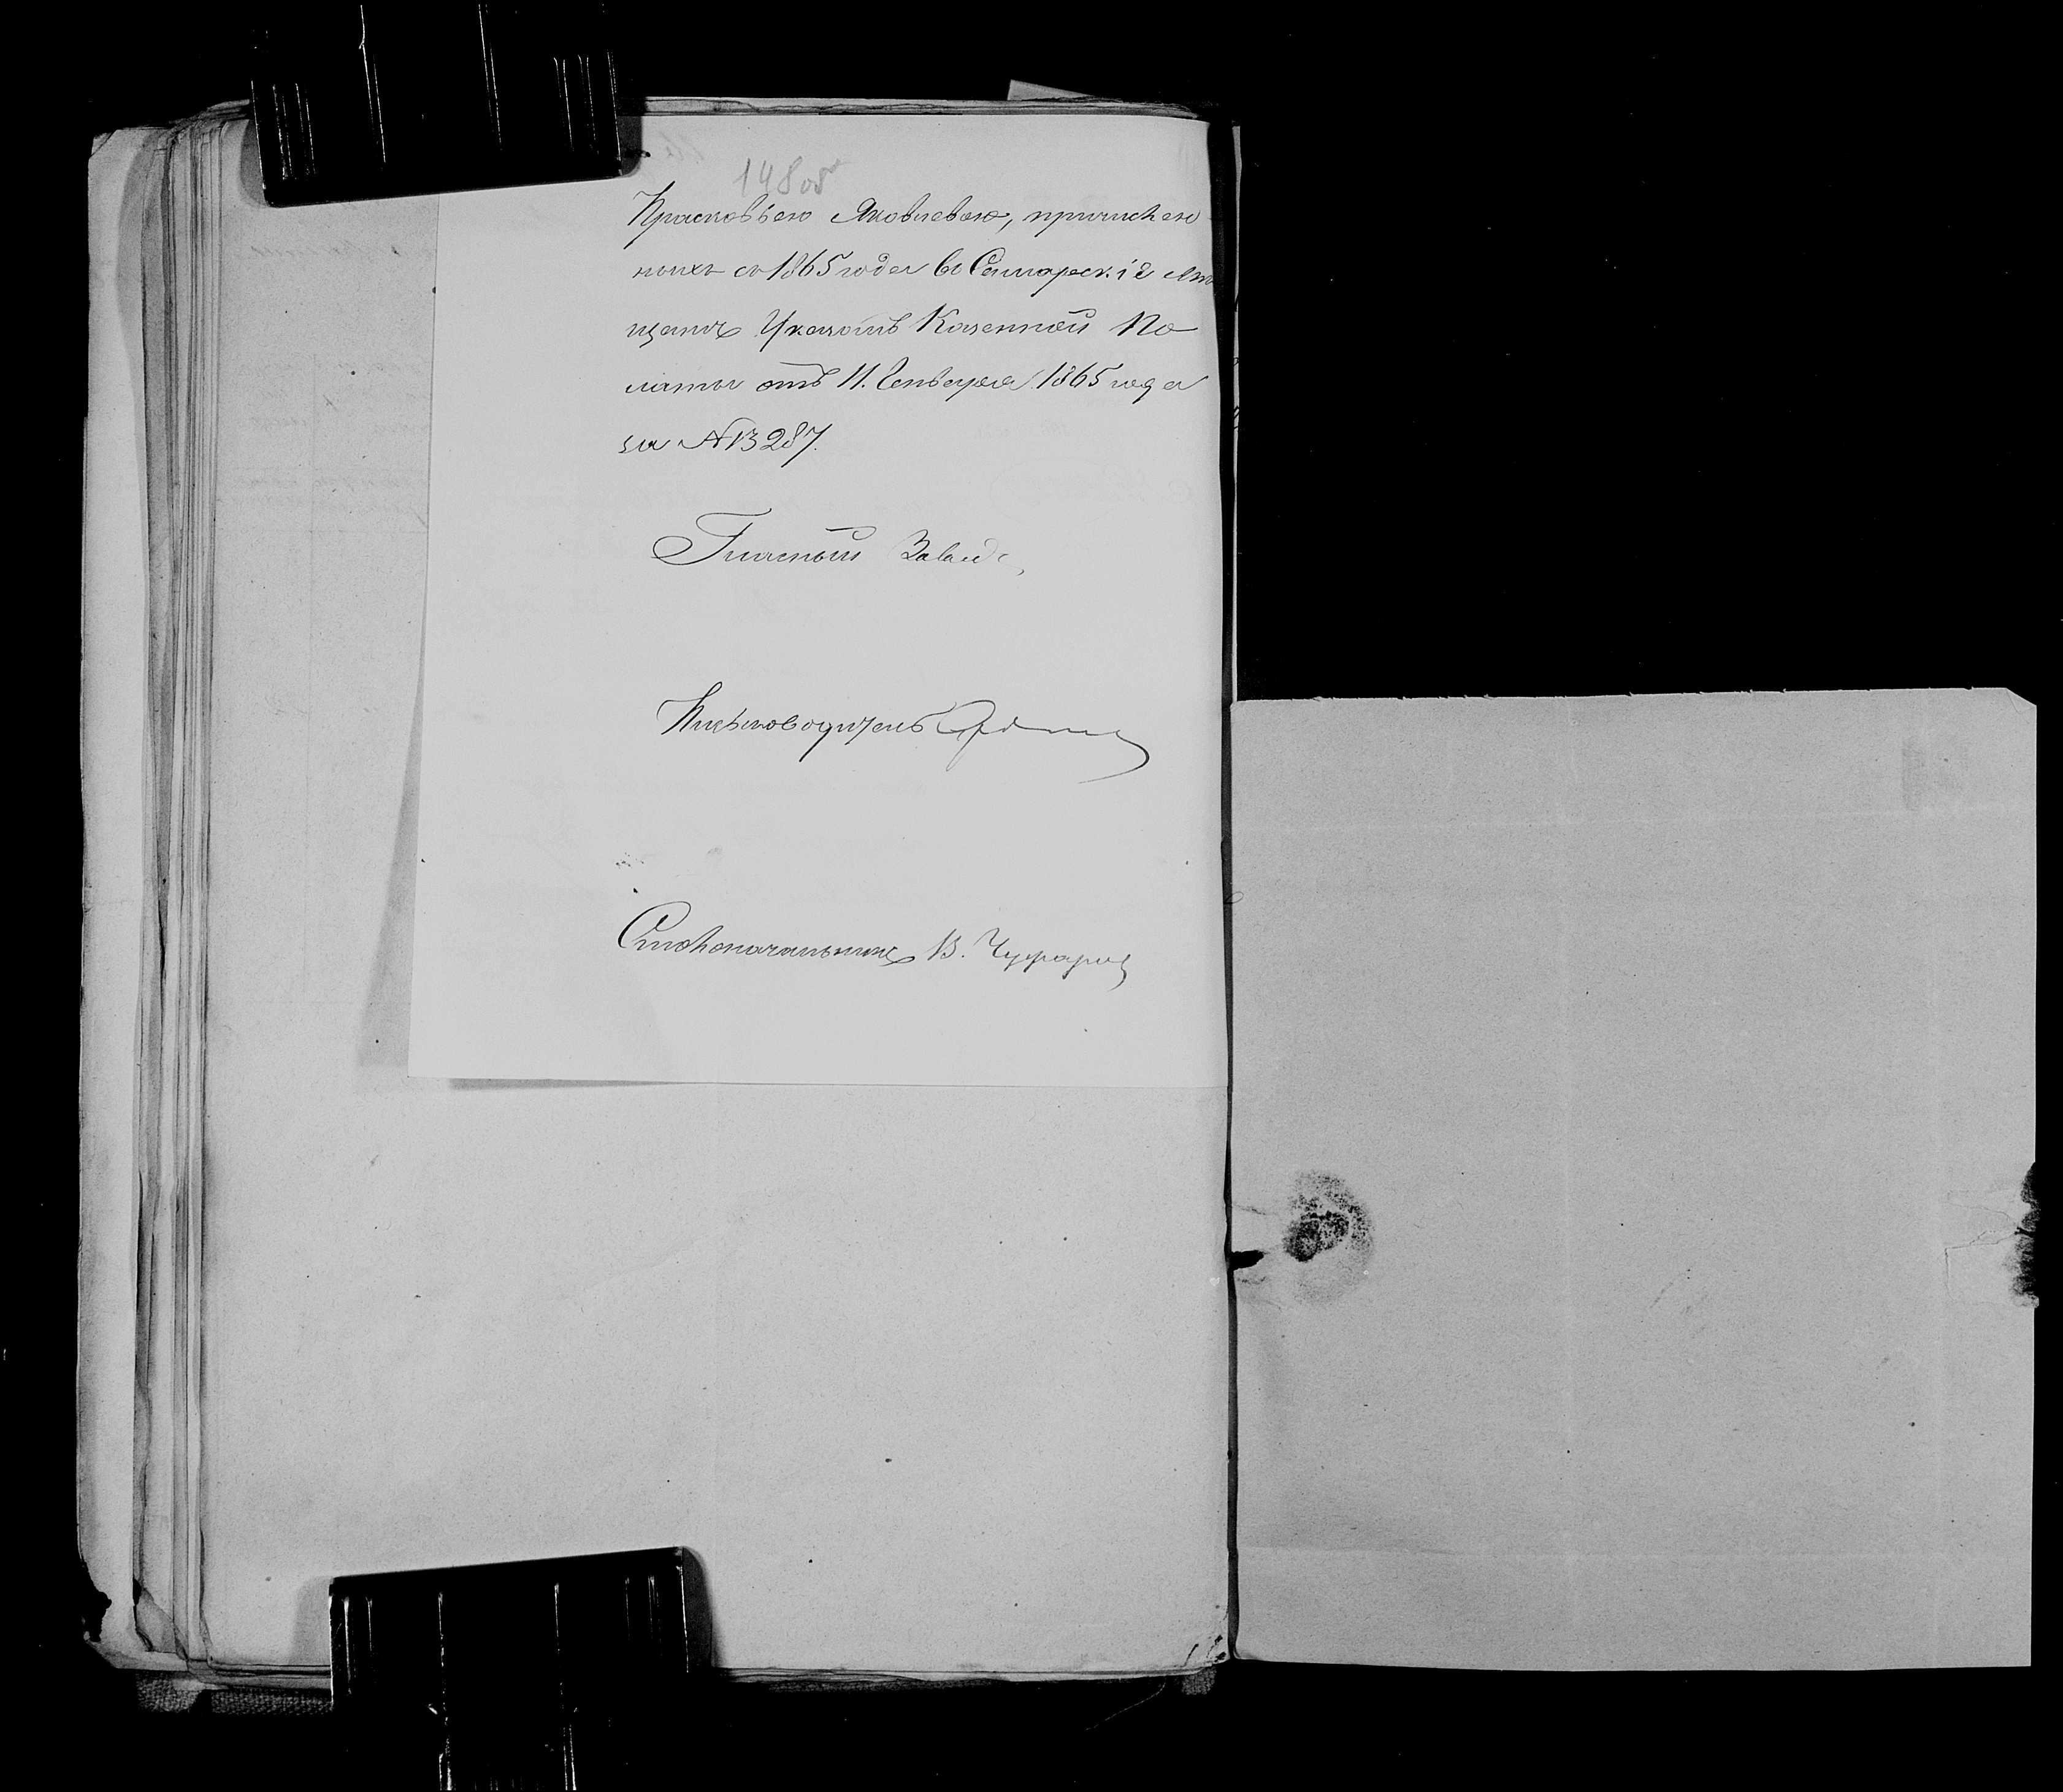 148 об
Прасковьею Яковлевою, причислен
ныхъ съ 1865 года въ Самарскіе Мѣ
щане Указомъ Казенной Па
латы отъ 11. Генваря 1865 года
за № 287.
Гласный
Письмоводитель
Столоначальникъ В.